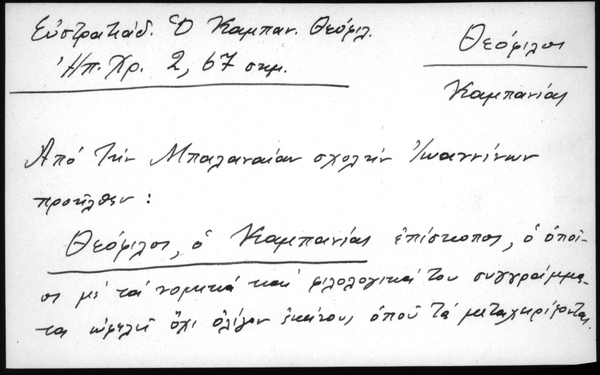 Εὐστρατιάδ. Ὁ Καμπαν. Θεόφιλ.
Ἠπ. Χρ. 2, 67 σημ.
Θεόφιλος
Καμπανίας
Ἀπό τήν Μπαλαναίαν σχολήν Ἰωαννίνων
προῆλθεν :
Θεόφιλος, ὁ Καμπανίας ἐπίσκοπος, ὁ ὁποῖ-
ος μέ τά νομικά καί φιλολογικά του συγγράμμα-
τα ὠφελεῖ ὄχι ὀλίγον ἐκείνους ὁπού τά μεταχειρίζονται.